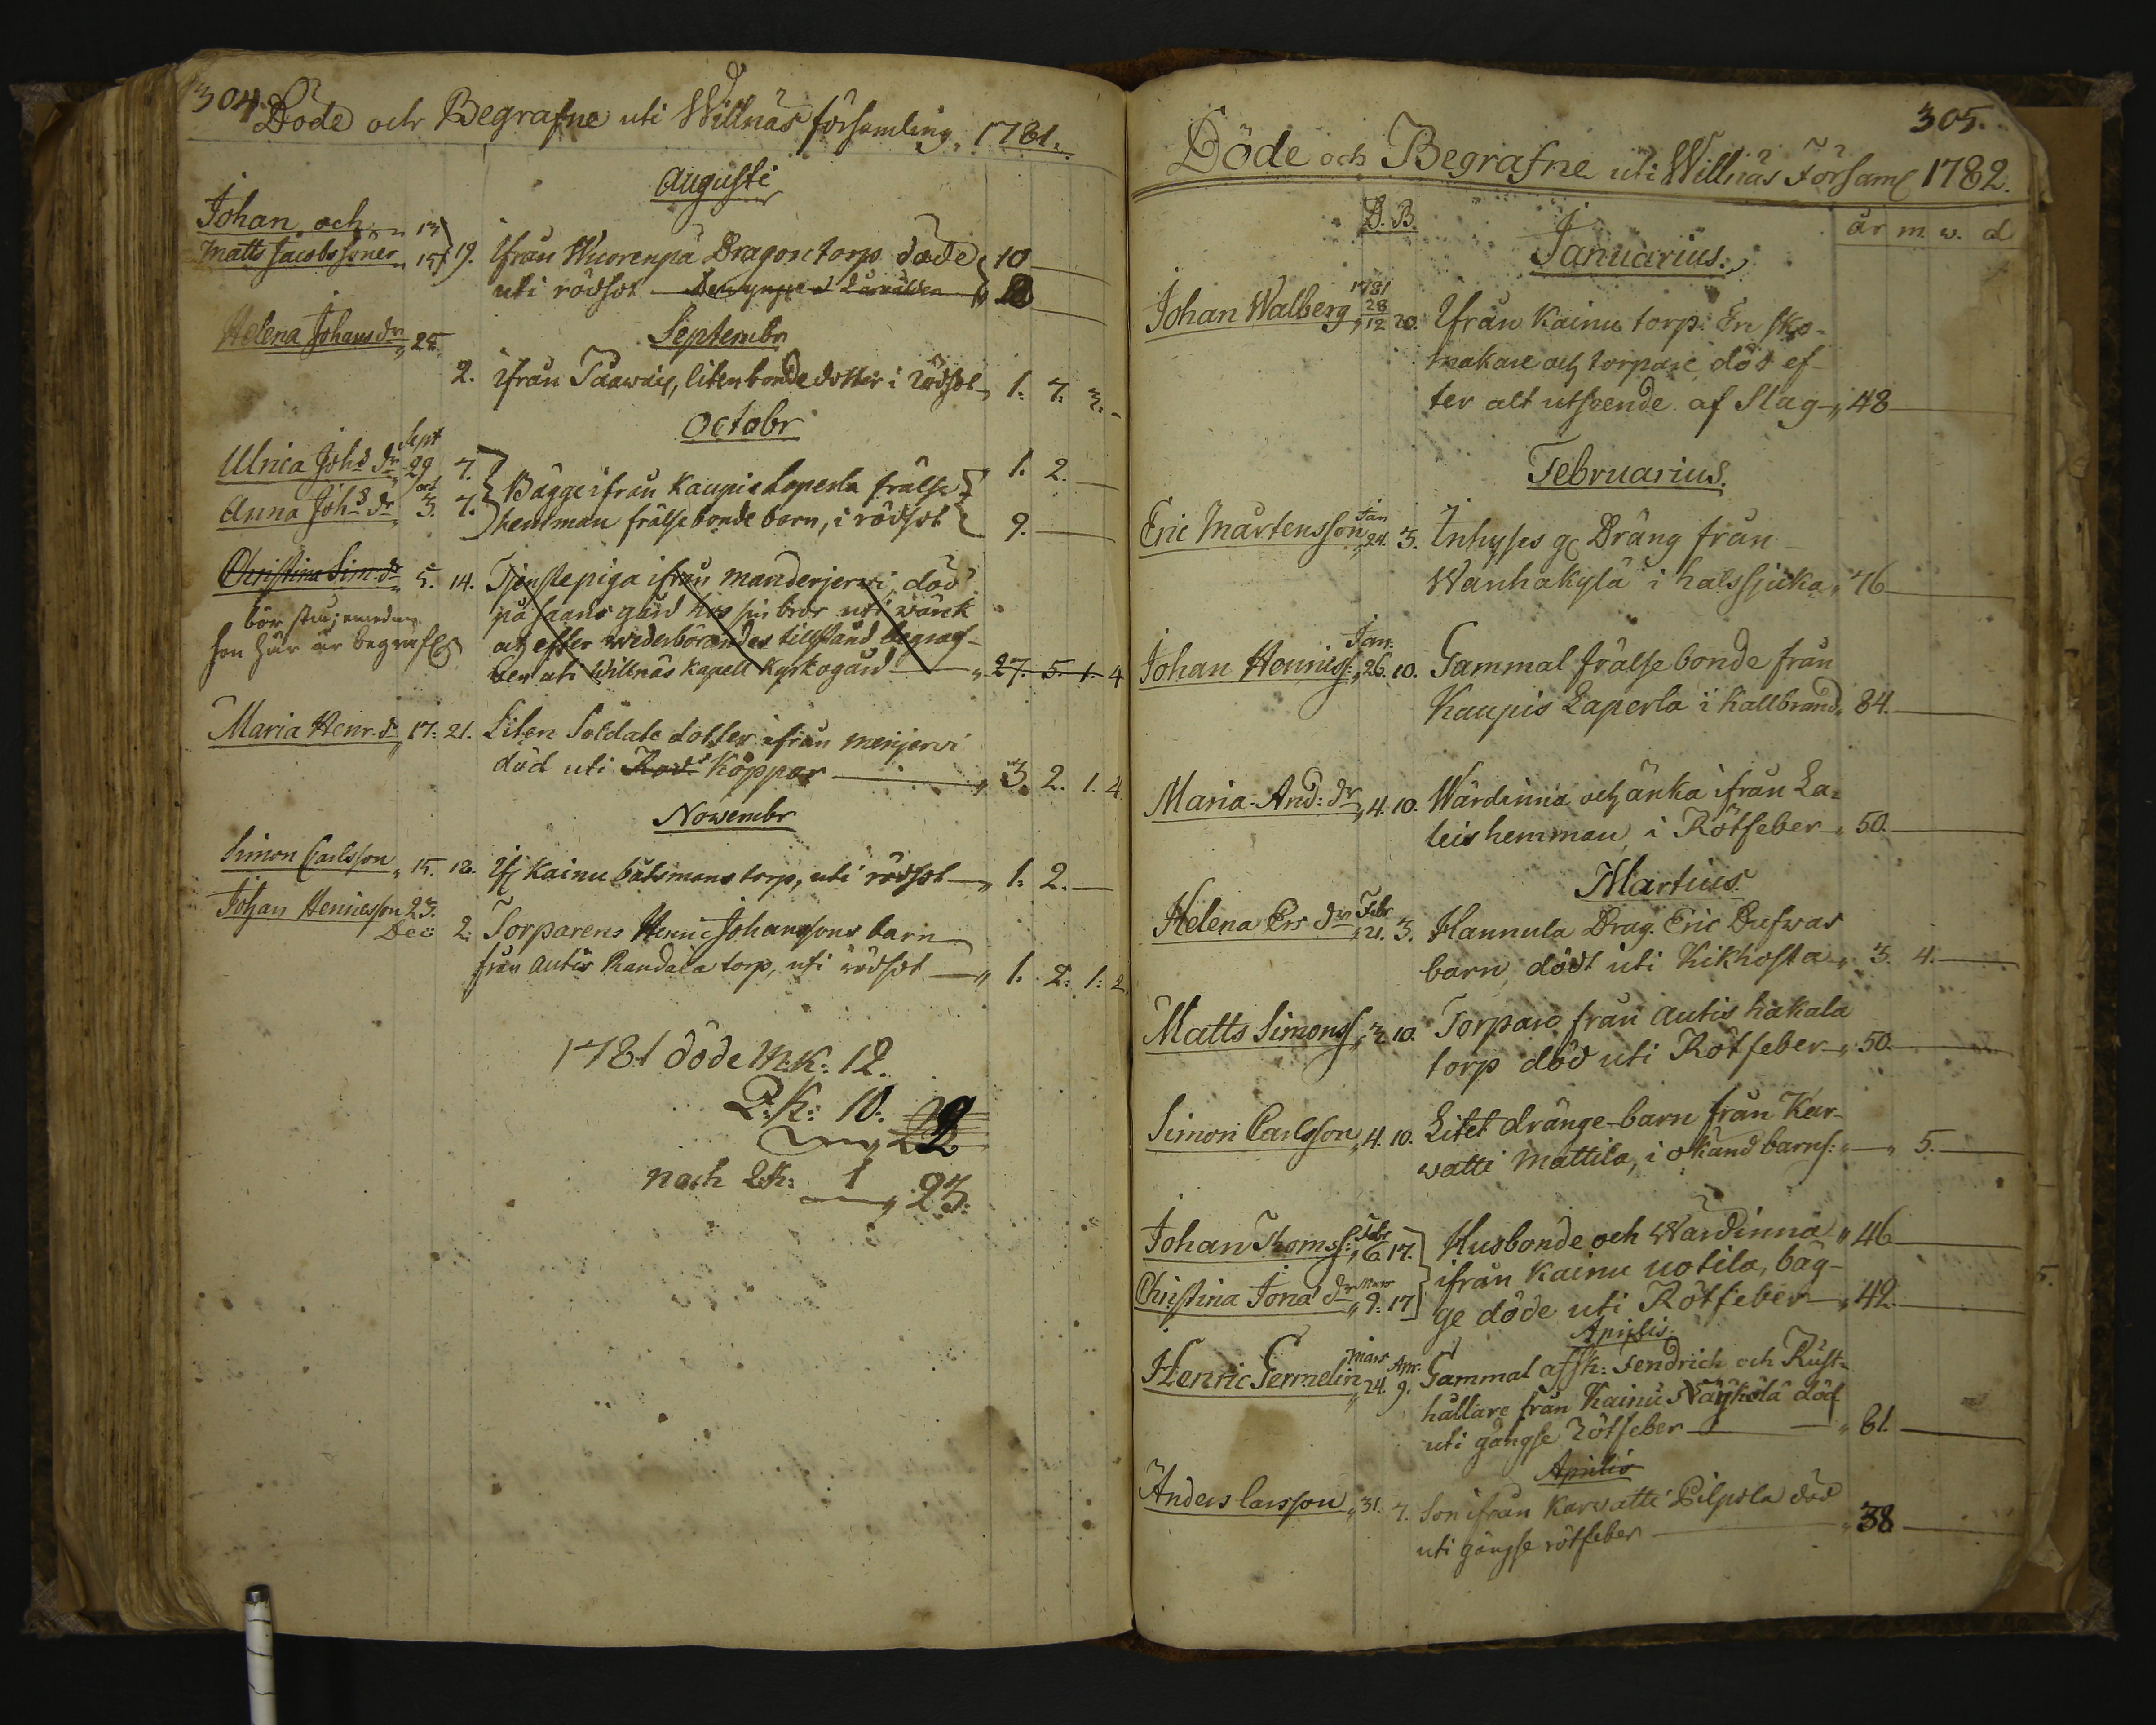 304.
Döde och Begrafne uti Willnäs församling, 1781.
Augusti
Johan och „ 13
Matts Jacobs söner „ 15 19. ifrån Wuorenpä Dragontorp döde 10
uti rödsot 8
Helena Johansdr „ 25.
Septembr
2. ifrån liten bonde dotter i rödsot 1. 7. 3.
Octobr
Sept
Ulrica Johs dr „ 29 7. 1. 2.
Bägge ifrån Kaupis Laperla frälse
oct
Anna Johs dr „ 3. 7. hemman frälsebonde barn, i rödsot 9.
Christina Sim. dr „ 5. 14. Tjenstepiga ifrån Manderjerwi, död
på gård hos sin bror uti wärk
bör stå; emedan
och efter wederbörandes tillstånd begraf-
hon här är begrafen
ven uti Willnäs Kapell Kyrkogård „ 27. 5. 1. 4
Maria Henr. dr „ 17. 21. Liten Soldate dotter ifrån menjerwi
död uti Röds Koppor „ 3. 2. 1. 4.
Nowembr
Simon Carlsson „ 15. 18. if Kainu båtsmans torp, uti rödsot „ 1. 2.
Johan Henricsson 23.
Dec: 2. Torparens Henric Johanssons barn
från Autis Randala torp, uti rödsot „ 1. 2. 1. 2.
1781 döde M:K: 12.
Q:K: 10.
22
noch Q:K: 1 „ 23.
305.
Döde och Begrafne uti Willnäs Församl 1782.
D. B. år m w. d
Januarius.
1781
Johan Walberg „ 28/12 20. Ifrån Kainu torp. En sko-
makare och torpare, död ef-
ter alt utseende af Slag „ 48
Februarius.
Jan
Eric Mårtensson „ 24. 3. Inhyses gl Dräng från
Wanhakylä i halssjuka „ 76
Jan:
Johan Henrics: „ 26. 10. Gammal frälse bonde från
Kaupis Laperla i Kallbrand „ 84.
Maria And: dr „ 4. 10. Wärdinna och änka ifrån La-
leis hemman, i Rötfeber „ 50.
Martius.
Febr
Helena Ers dr „ 21. 3. Hannula Drag. Eric Dufwas
barn, dödt uti Kikhosta „ 3. 4.
Matts Simons „ 3. 10. Torpare från Autis hakala
torp död uti Rötfeber „ 50.
Simon Carlsson „ 4. 10. Litet dränge-barn från Kar-
watti Mattila, i okänd barns: „ — „ 5.
Febr
Johan Thoms: „ 6 17. Husbonde och Wärdinna „ 46
ifrån Kainu uotila, bäg-
Mars
Christina Jona dr „ 9. 17 ge döde uti Rötfeber „ 42.
Aprilis.
Mars Apr.
Henric Termelin „ 24. 9. Gammal afsk: Fendrich och Rust-
hållare från Kainu död
uti gångse rötfeber „ 61.
Aprilis
Anders Larsson „ 31. 7. Son ifrån Karwatti Pilpola död
uti gångse rötfeber „ 38